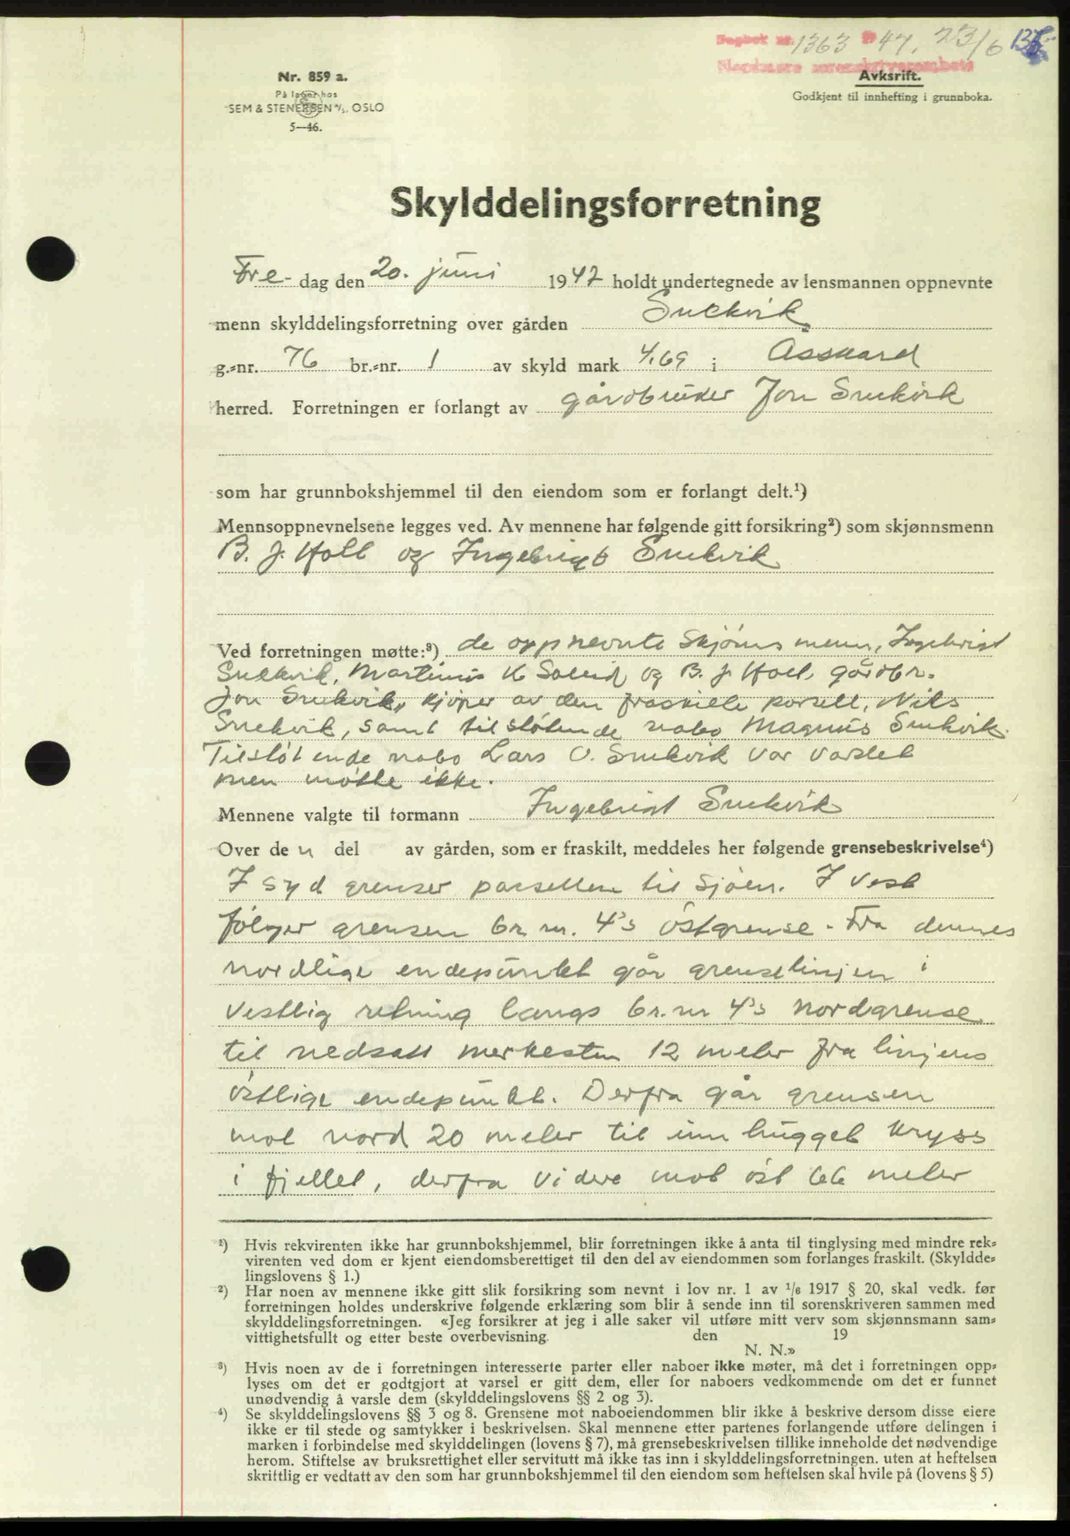 Dagbok nr. 1363 1947, 23/6 137
Nordmøre sorenskriverembete
Nr. 859 a.
På lager hos
SEM & STENERSEN A/S, OSLO
5—46.
Avksrift.
Godkjent til innhefting i grunnboka.
Skylddelingsforretning
Fre- dag den 20. juni 1947 holdt undertegnede av lensmannen oppnevnte
menn skylddelingsforretning over gården Snekvik
g.-nr. 76 br.-nr. 1 av skyld mark 4.69 i Åsskard
herred. Forretningen er forlangt av gårdbruker Jon Snekvik
som har grunnbokshjemmel til den eiendom som er forlangt delt.¹)
Mennsoppnevnelsene legges ved. Av mennene har følgende gitt forsikring²) som skjønnsmenn
B. J. Holl og Ingebrigt Snekvik
Ved forretningen møtte:³) de oppnevnte skjønsmenn, Ingebrigt
Snekvik, Martinus K Sollid og B. J Hoel, gårdbr.
Jon Snekvik, kjøper av den fraskilte parsell, Nils
Snekvik, samt tilstøtende nabo Magnus Snekvik.
Tilstøtende nabo Lars O. Snekvik var varslet
men møtte ikke.
Mennene valgte til formann Ingebrigt Snekvik
Over den del av gården, som er fraskilt, meddeles her følgende grensebeskrivelse⁴)
I syd grenser parsellen til sjøen. I vest
følger grensen br. nr. 4's østgrense. Fra dennes
nordlige endepunkt går grenselinjen i
vestlig retning langs br. nr 4's nordgrense
til nedsatt merkesten 12 meter fra linjens
østlige endepunkt. Derfra går grensen
mot nord 20 meter til innhugget kryss
i fjellet, derfra videre mot øst 66 meter
¹) Hvis rekvirenten ikke har grunnbokshjemmel, blir forretningen ikke å anta til tinglysing med mindre rek-
virenten ved dom er kjent eiendomsberettiget til den del av eiendommen som forlanges fraskilt. (Skyldde-
lingslovens § 1.)
²) Har noen av mennene ikke gitt slik forsikring som nevnt i lov nr. 1 av 1/6 1917 § 20, skal vedk. før
forretningen holdes underskrive følgende erklæring som blir å sende inn til sorenskriveren sammen med
skylddelingsforretningen. «Jeg forsikrer at jeg i alle saker vil utføre mitt verv som skjønnsmann sam-
vittighetsfullt og etter beste overbevisning. den 19
N. N.»
³) Hvis noen av de i forretningen interesserte parter eller naboer ikke møter, må det i forretningen opp-
lyses om det er godtgjort at varsel er gitt dem, eller for naboers vedkommende om det er funnet
unødvendig å varsle dem (skylddelingslovens §§ 2 og 3).
⁴) Se skylddelingslovens §§ 3 og 8. Grensene mot naboeiendommen blir ikke å beskrive dersom disse eiere
ikke er til stede og samtykker i beskrivelsen. Skal mennene etter partenes forlangende utføre delingen i
marken i forbindelse med skylddelingen (lovens § 7), må grensebeskrivelsen tillike inneholde det nødvendige
herom. Stiftelse av bruksrettighet eller servitutt må ikke tas inn i skylddelingsforretningen. uten at heftelsen
skriftlig er vedtatt av den som har grunnbokshjemmel til den eiendom som heftelsen skal hvile på (lovens § 5)